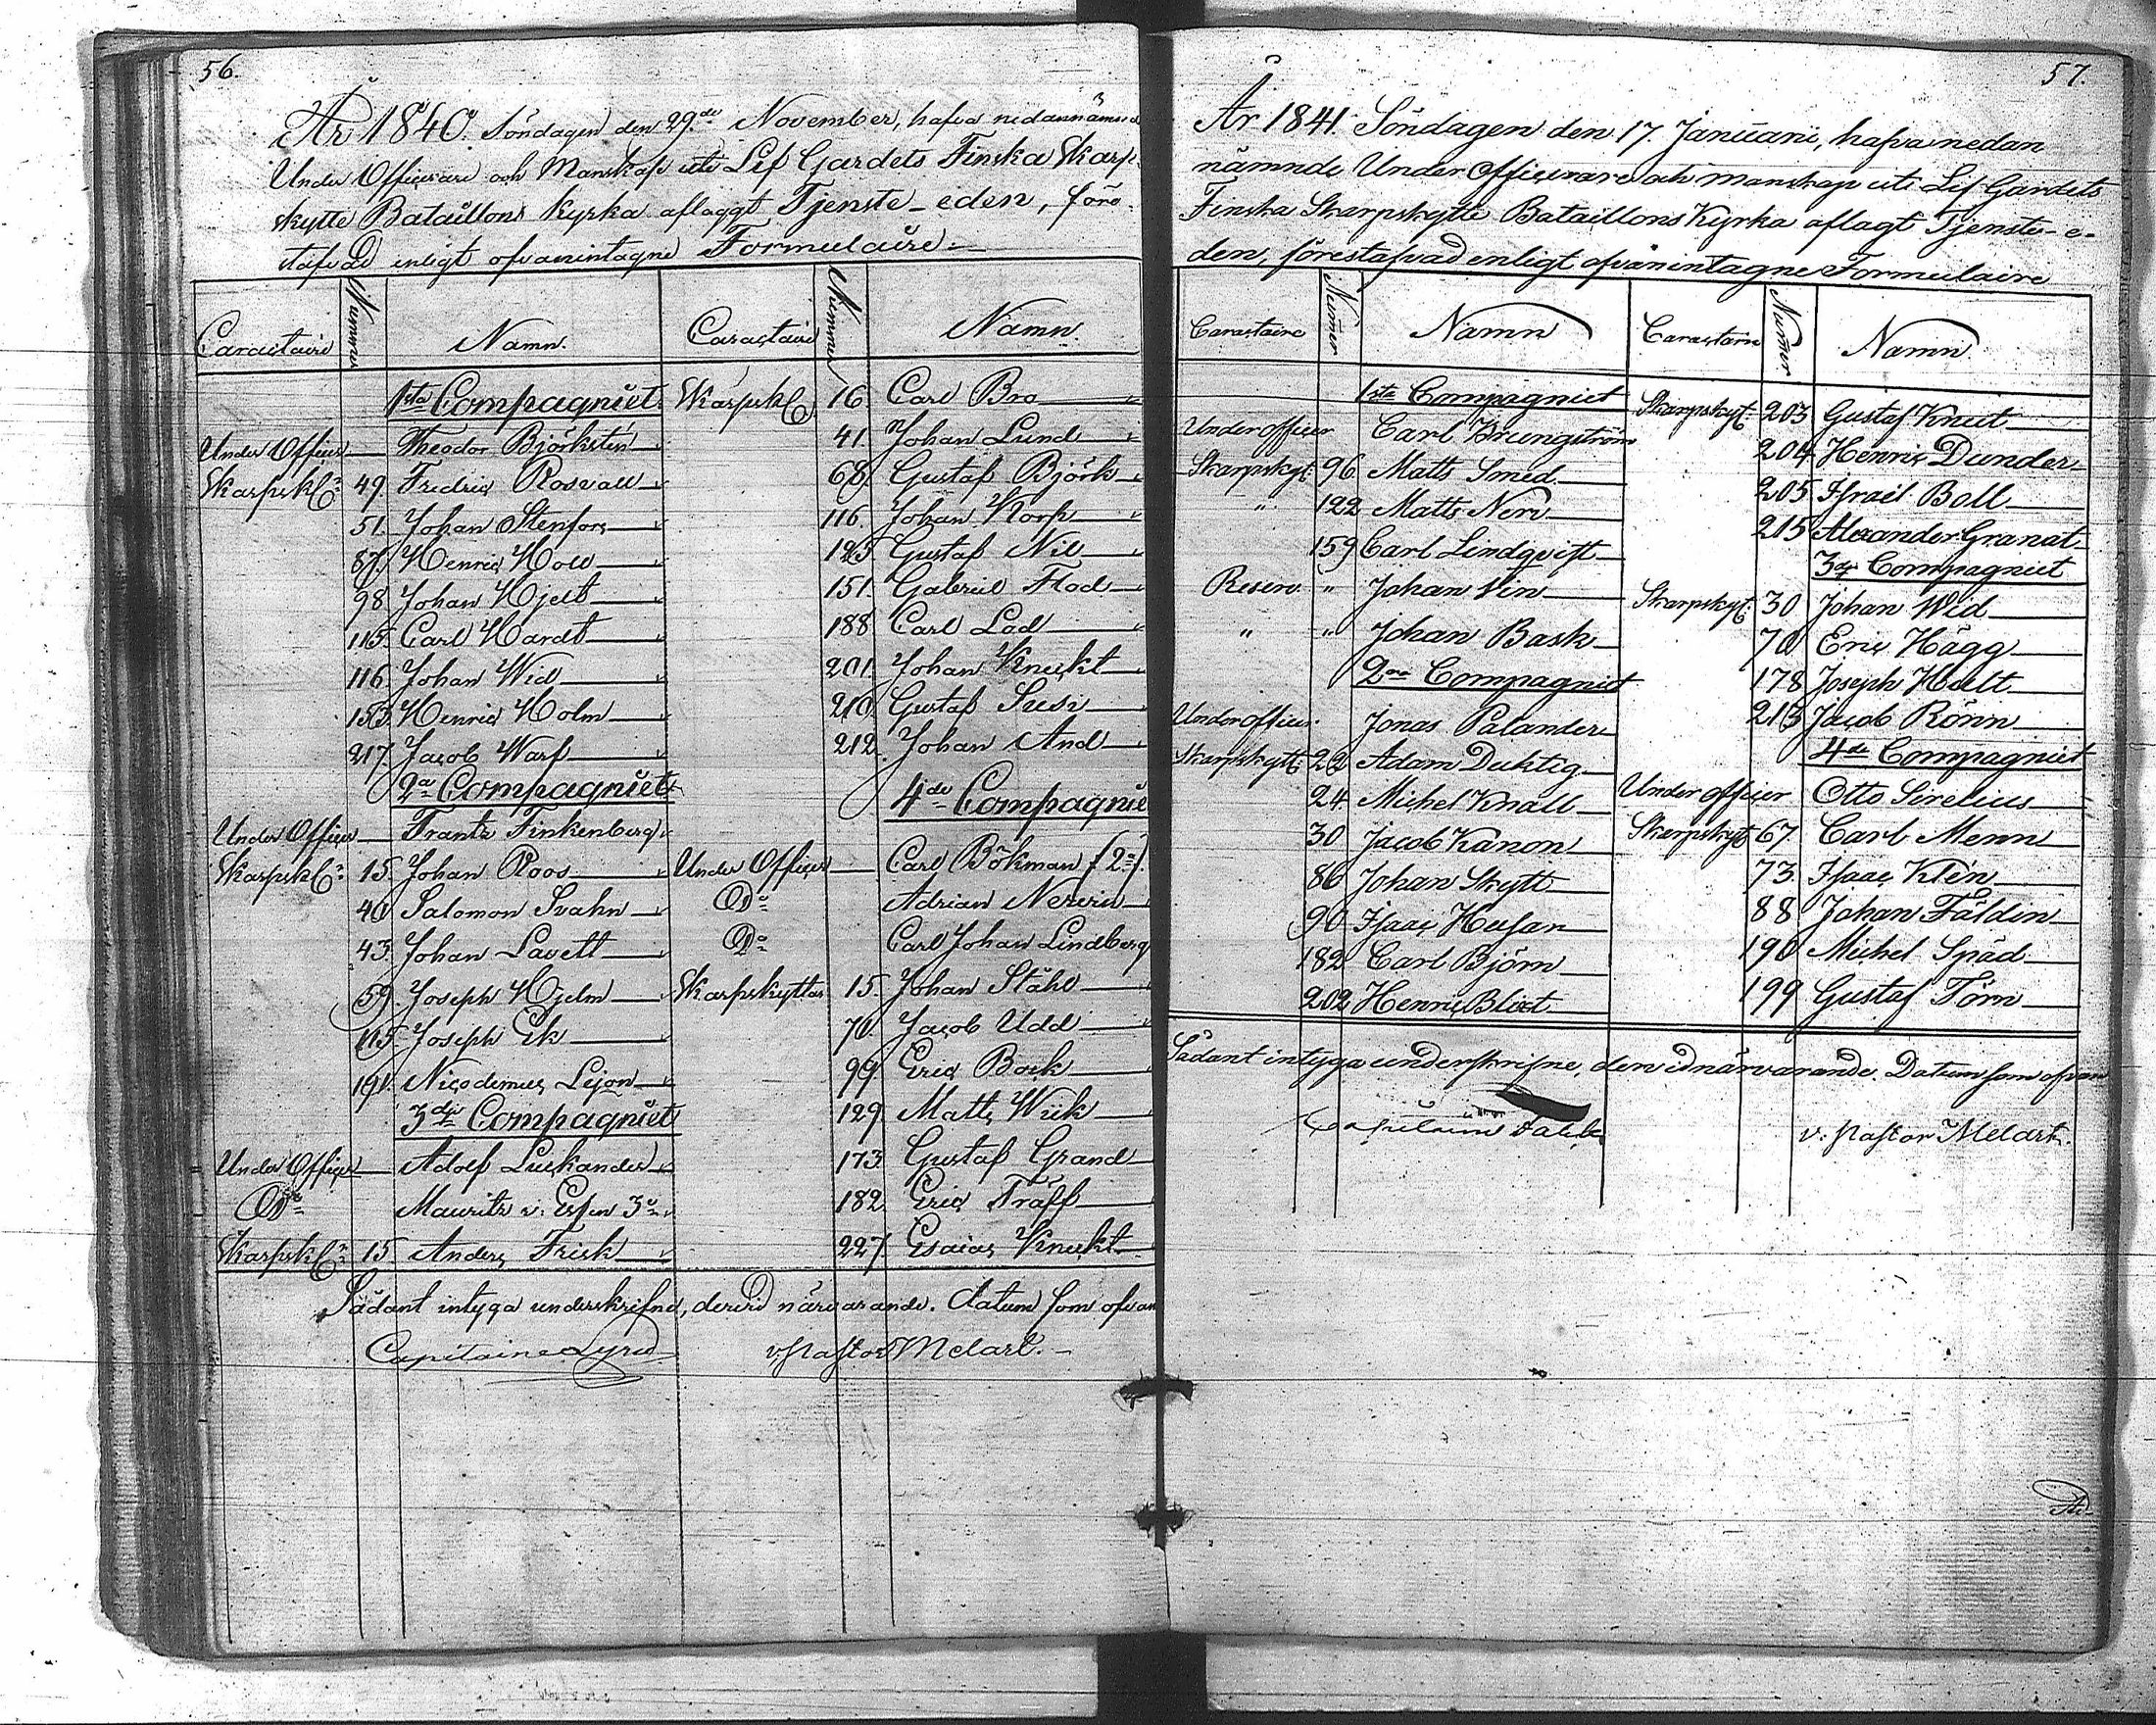 56.
År 1840. Söndagen den 29de November, hafva nedannämnde
Under Officerare och Manskap uti Lif Gardets Finska Skarp-
skytte Bataillons kyrka aflaggt Tjenste-eden, före-
stafvad enligt ofvanintagne Formulaire.
Caractaire Nummer Namn. Caractaire Nummer Namn.
1sta Compagniet
Under Officer Theodor Björkstén
Skarpsk. 49. Fredric Rosvall
51. Johan Stenfors
87. Henric Holl
98 Johan Hjelt
115. Carl Hardt
116. Johan Wid
153. Henric Holm
217. Jacob Warf
2a Compagniet
Under Officer Frantz Finkenberg
Skarpsk. 15. Johan Roos
40 Salomon Svahn
43. Johan Lavett
59. Joseph Hjelm
115. Joseph Ek
191. Nicodemus Lejon
3de Compagniet
Under Officer Adolf Luckander
Do Mauritz v. Essen 3e
Skarpsk. 15. Anders Frisk
Skarpsk. 16. Carl Bro
41. Johan Lund
68. Gustaf Björk
116. Johan Korp
125. Gustaf Nil
151. Gabriel Flod
188 Carl Lod
201. Johan Knekt
210. Gustaf Susi
212. Johan And
4de Compagnie
Under Officer Carl Bökman (2e)
Do Adrian Nererin
Do Carl Johan Lindberg
Skarpskyttar 15. Johan Ståhl
70. Jacob Udd
99. Eric Bock
129. Matts Wiik
173. Gustaf Grand
182 Eric Träff
227. Esaias Knekt
Sådant intyga underskrifne, dervid närvarande. Datum som ofvan
Capitaine Lyra v. Pastor Melart.
57.
År 1841. Söndagen den 17. Januarii, hafva nedan
nämnde Under Officerare och manskap uti Lif Gardets
Finska Skarpskytte Bataillons Kyrka aflagt Tjenste-e-
den, förestafvad enligt ofvanintagne Formulaire
Caractaire Numer Namn Caractaire Numer Namn
1sta Compagniet
Under officer Carl Brungström
Skarpskyt. 96. Matts Smed
" 122 Matts Nerv
159 Carl Lindqvist
Reserv. " Johan Vin
" " Johan Bask
2dra Compagniet
Under officer. Jonas Palander
Skarpskytt. 22 Adam Duktig
24 Michel Knall
30 Jacob Kanon
86 Johan Skytt
90 Isaac Husar
182 Carl Björn
202 Henric Blixt
Skarpskyt. 203 Gustaf Knut
204 Henric Dunder
205 Israel Boll
215 Alexander Granat
3de Compagniet
Skarpskyt. 30 Johan Wid
70 Eric Hägg
178 Joseph Hult
213 Jacob Rönn
4de Compagniet
Under officer Otto Sirelius
Skarpskyt. 67. Carl Menn
73. Isaac Klén
88 Johan Fäldin
190 Michel Späd
199 Gustaf Törn
Sådant intyga underskrifne, dervid närvarande. Datum som ofvan
Capitaine v. Pastor Melart.